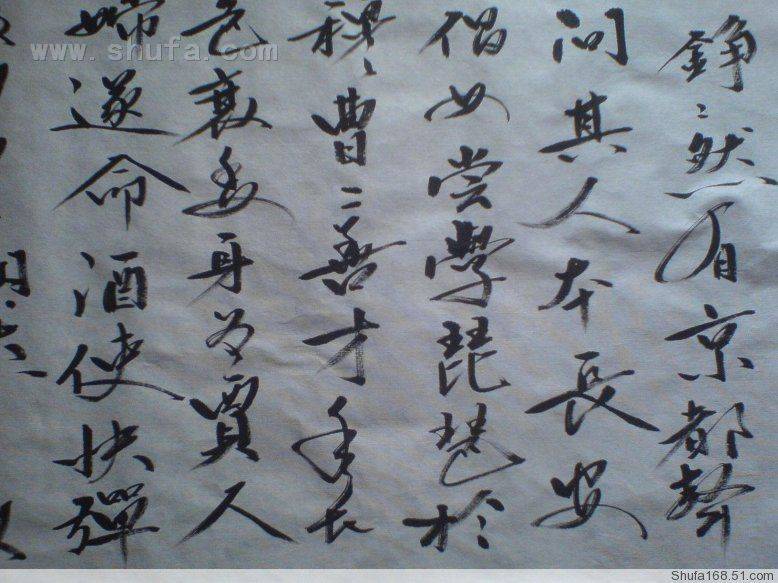 錚〻然有京都聲
问其人本長安
倡女嘗學琵琶於
穆〻曹二善才年長
色衰委身為賈人
婦遂命酒使快彈
www.shufa.com
Shufa168.51.com